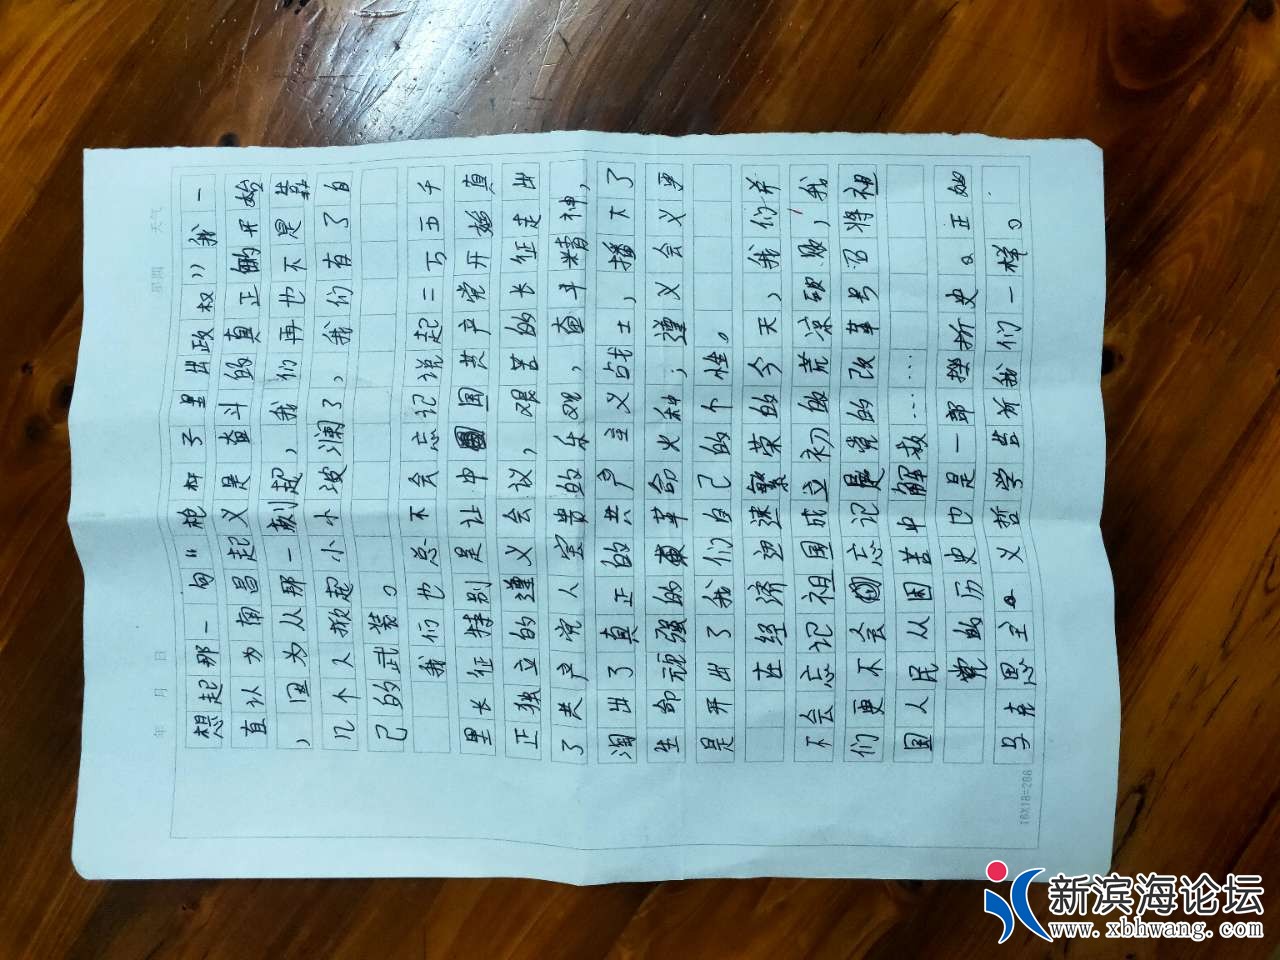 年 月 日 星期 天气
想起那一句“枪杆子里出政权”我一
直认为南昌起义是奋斗的真正的开始
，因为从那一刻起，我们再也不是靠
几个人掀起小小波澜了，我们有了自
己的武装。
我们也总不会忘记说起二万五千
里长征特别是让中国共产党开始真
正独立的遵义会议，艰苦的长征走出
了共产党人宝贵的乐观，奋斗精神，
淘出了真正的共产主义战士，播下了
生命顽强的革命火种；遵义会议更
是开出了我们自己的个性。
在经济迅速繁荣的今天，我们并
不会忘记祖国成立初的荒凉颓败，我
们更不会忘记是党的改革号召将祖
国人民从困苦中解救……
党的历史也是一部挫折史。正如
马克思主义哲学告诉我们一样。
16X18=288
新滨海论坛
www.xbhwang.com